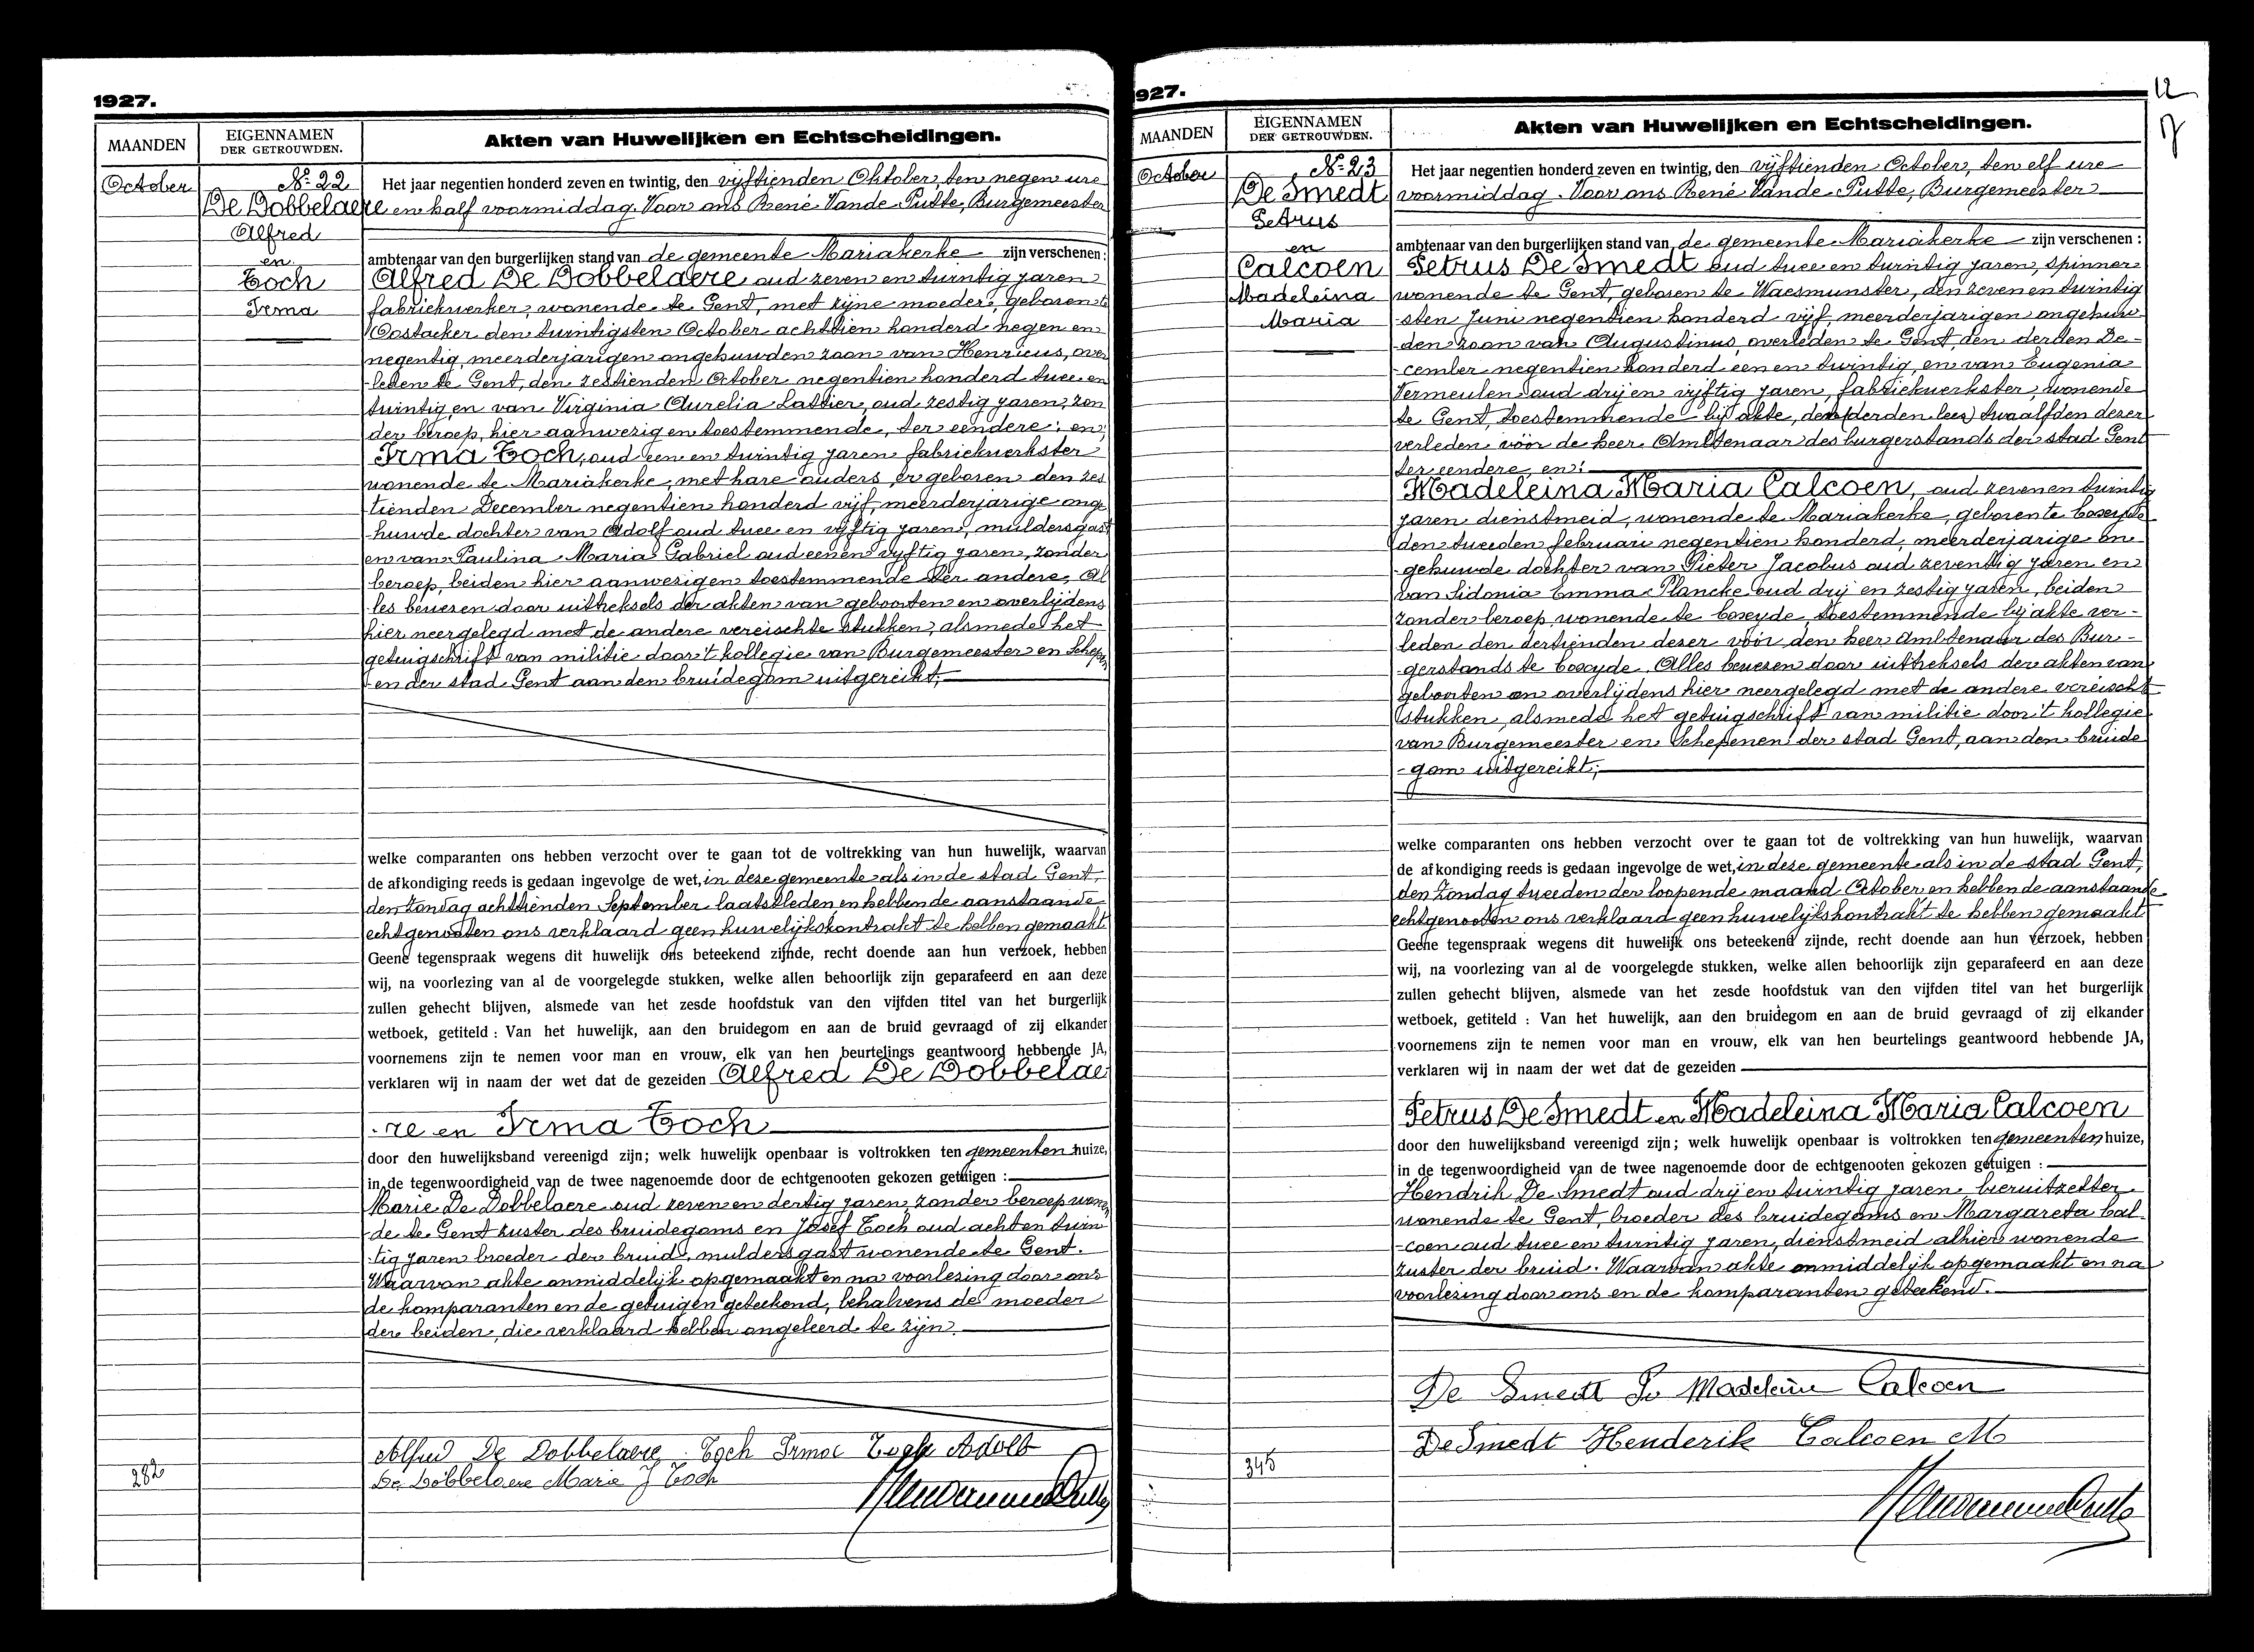 1927.
MAANDEN
EIGENNAMEN
DER GETROUWDEN.
Akten van Huwelijken en Echtscheidingen.
October
No. 22
De Dobbelaere
Alfred
en
Toch
Irma
Het jaar negentien honderd zeven en twintig, den vijftienden Oktober, ten negen ure
en half voormiddag. Voor ons René Vande Putte, Burgemeester
ambtenaar van den burgerlijken stand van de gemeente Mariakerke zijn verschenen:
Alfred De Dobbelaere oud zeven en twintig jaren
fabriekwerker, wonende te Gent, met zijne moeder, geboren te
Oostacker den twintigsten October achttien honderd negen en
negentig, meerderjarigen ongehuwden zoon van Henricus, over
-leden te Gent, den zestienden October negentien honderd twee en
twintig en van Virginia Aurelia oud zestig jaren, zon
der beroep, hier aanwezig en toestemmende, ter eendere; en,
Irma Toch, oud een en twintig jaren fabriekwerkster
wonende te Mariakerke, met hare ouders, er geboren den zes
tienden December negentien honderd vijf, meerderjarige onge
-huwde dochter van Adolf oud twee en vijftig jaren, muldersgast
en van Paulina Maria Gabriel oud een en vijftig jaren, zonder
beroep, beiden hier aanwezig en toestemmende ter andere, Al
les bewezen door uittreksels der akten van geboorten en overlijdens
hier neergelegd met de andere vereischte stukken, alsmede het
getuigschrift van militie door 't kollegie van Burgemeester en Schepen
-en der stad Gent aan den bruidegom uitgereikt;
welke comparanten ons hebben verzocht over te gaan tot de voltrekking van hun huwelijk, waarvan
de afkondiging reeds is gedaan ingevolge de wet, in deze gemeente als in de stad Gent,
den Zondag achttienden September laatstleden en hebben de aanstaande
echtgenooten ons verklaard geen huwelijkskontrakt te hebben gemaakt
Geene tegenspraak wegens dit huwelijk ons beteekend zijnde, recht doende aan hun verzoek, hebben
wij, na voorlezing van al de voorgelegde stukken, welke allen behoorlijk zijn geparafeerd en aan deze
zullen gehecht blijven, alsmede van het zesde hoofdstuk van den vijfden titel van het burgerlijk
wetboek, getiteld : Van het huwelijk, aan den bruidegom en aan de bruid gevraagd of zij elkander
voornemens zijn te nemen voor man en vrouw, elk van hen beurtelings geantwoord hebbende JA,
verklaren wij in naam der wet dat de gezeiden Alfred De Dobbelae
-re en Irma Toch
door den huwelijksband vereenigd zijn; welk huwelijk openbaar is voltrokken ten gemeenten huize,
in de tegenwoordigheid van de twee nagenoemde door de echtgenooten gekozen getuigen :
Marie De Dobbelaere oud zeven en dertig jaren, zonder beroep wonen
-de te Gent zuster des bruidegoms en Josef Toch oud acht en twin
-tig jaren broeder der bruid, muldersgast wonende te Gent.
Waarvan akte onmiddelijk opgemaakt en na voorlezing door ons
de komparanten en de getuigen geteekend, behalvens de moeder
der beiden, die verklaard hebben ongeleerd te zijn.
Alfred De Dobbelaere Toch Irma Toch Adolf
De Dobbelaere Marie J Toch
282
1927.
12
MAANDEN
EIGENNAMEN
DER GETROUWDEN.
Akten van Huwelijken en Echtscheidingen.
October
No. 23
De Smedt
Petrus
en
Calcoen
Madeleina
Maria
Het jaar negentien honderd zeven en twintig, den vijftienden October, ten elf ure
voormiddag. Voor ons René Vande Putte, Burgemeester
ambtenaar van den burgerlijken stand van de gemeente Mariakerke zijn verschenen :
Petrus De Smedt oud twee en twintig jaren, spinner
wonende te Gent, geboren te Waesmunster, den zeven en twintig
-sten Juni negentien honderd vijf, meerderjarigen ongehuw
-den zoon van Augustinus, overleden te Gent, den derden De-
-cember negentien honderd een en twintig, en van Eugenia
Vermeulen oud drij en vijftig jaren, fabriekwerkster, wonende
te Gent, toestemmende bij akte, den (derden lees) twaalfden dezer
verleden vóór de heer Ambtenaar des burgerstands der stad Gent
ter eendere, en;
Madeleina Maria Calcoen, oud zeven en twintig
jaren dienstmeid, wonende te Mariakerke, geboren te Coxyde
den tweeden februari negentien honderd, meerderjarige on-
-gehuwde dochter van Pieter Jacobus oud zeventig jaren en
van Sidonia Emma Plancke oud drij en zestig jaren, beiden
zonder beroep wonende te Coxyde, toestemmende bij akte ver-
-leden den dertienden dezer vóór den heer Ambtenaar des Bur-
-gerstands te Coxyde. Alles bewezen door uittreksels der akten van
geboorten en overlijdens hier neergelegd met de andere vereischte
stukken, alsmede het getuigschrift van militie door 't kollegie
van Burgemeester en Schepenen der stad Gent, aan den bruide
-gom uitgereikt;
welke comparanten ons hebben verzocht over te gaan tot de voltrekking van hun huwelijk, waarvan
de afkondiging reeds is gedaan ingevolge de wet, in deze gemeente als in de stad Gent,
den Zondag tweeden der loopende maand October en hebben de aanstaande
echtgenooten ons verklaard geen huwelijkskontrakt te hebben gemaakt
Geene tegenspraak wegens dit huwelijk ons beteekend zijnde, recht doende aan hun verzoek, hebben
wij, na voorlezing van al de voorgelegde stukken, welke allen behoorlijk zijn geparafeerd en aan deze
zullen gehecht blijven, alsmede van het zesde hoofdstuk van den vijfden titel van het burgerlijk
wetboek, getiteld : Van het huwelijk, aan den bruidegom en aan de bruid gevraagd of zij elkander
voornemens zijn te nemen voor man en vrouw, elk van hen beurtelings geantwoord hebbende JA,
verklaren wij in naam der wet dat de gezeiden
Petrus De Smedt en Madeleina Maria Calcoen
door den huwelijksband vereenigd zijn; welk huwelijk openbaar is voltrokken ten gemeenten huize,
in de tegenwoordigheid van de twee nagenoemde door de echtgenooten gekozen getuigen :
Hendrik De Smedt oud drij en twintig jaren bieruitzetter
wonende te Gent, broeder des bruidegoms en Margareta Cal
-coen oud twee en twintig jaren, dienstmeid alhier wonende
zuster der bruid. Waarvan akte onmiddelijk opgemaakt en na
voorlezing door ons en de komparanten geteekend.
De Smedt P. Madeleine Calcoen
De Smedt Henderik Calcoen M
345